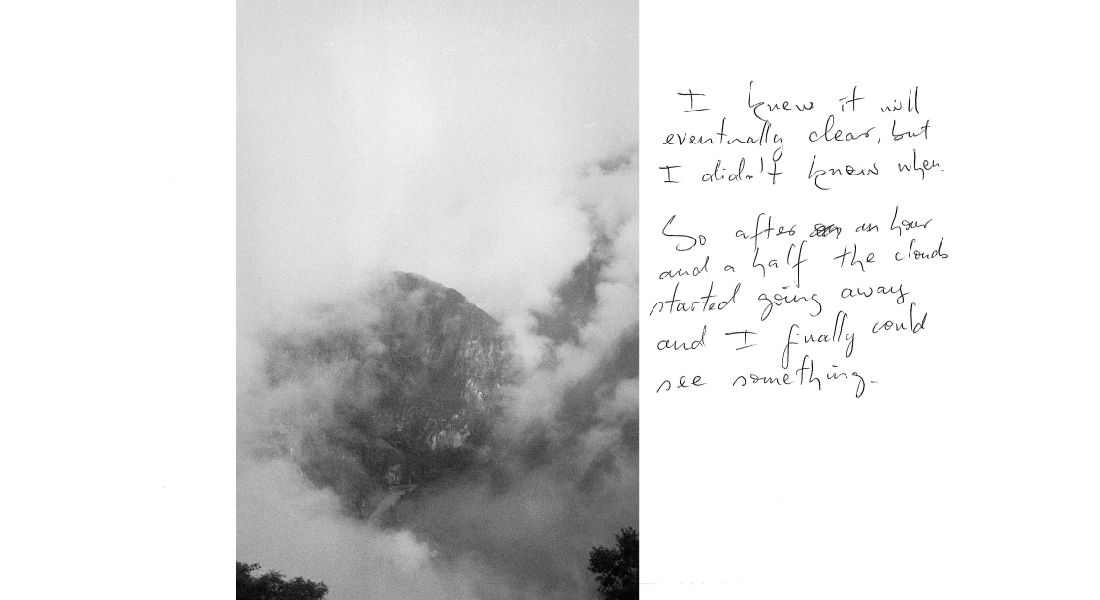 I knew it will
eventually clear, but
I didn't know when.
So after an hour
and a half the clouds
started going away
and I finally could
see something.